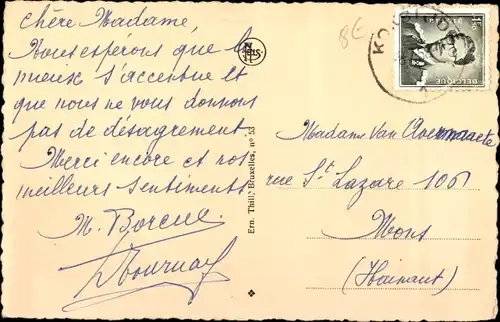 Chère Madame,
Nous espérons que le
mieux s'accentue et
que nous ne vous donnons
pas de désagrément
Merci encore et nos
meilleurs sentiments
M.
Ern. Thill, Bruxelles, nº 53
NELS
8€
BELGIQUE
Madame Van
rue St Lazare 106
Mons
(Hainaut)